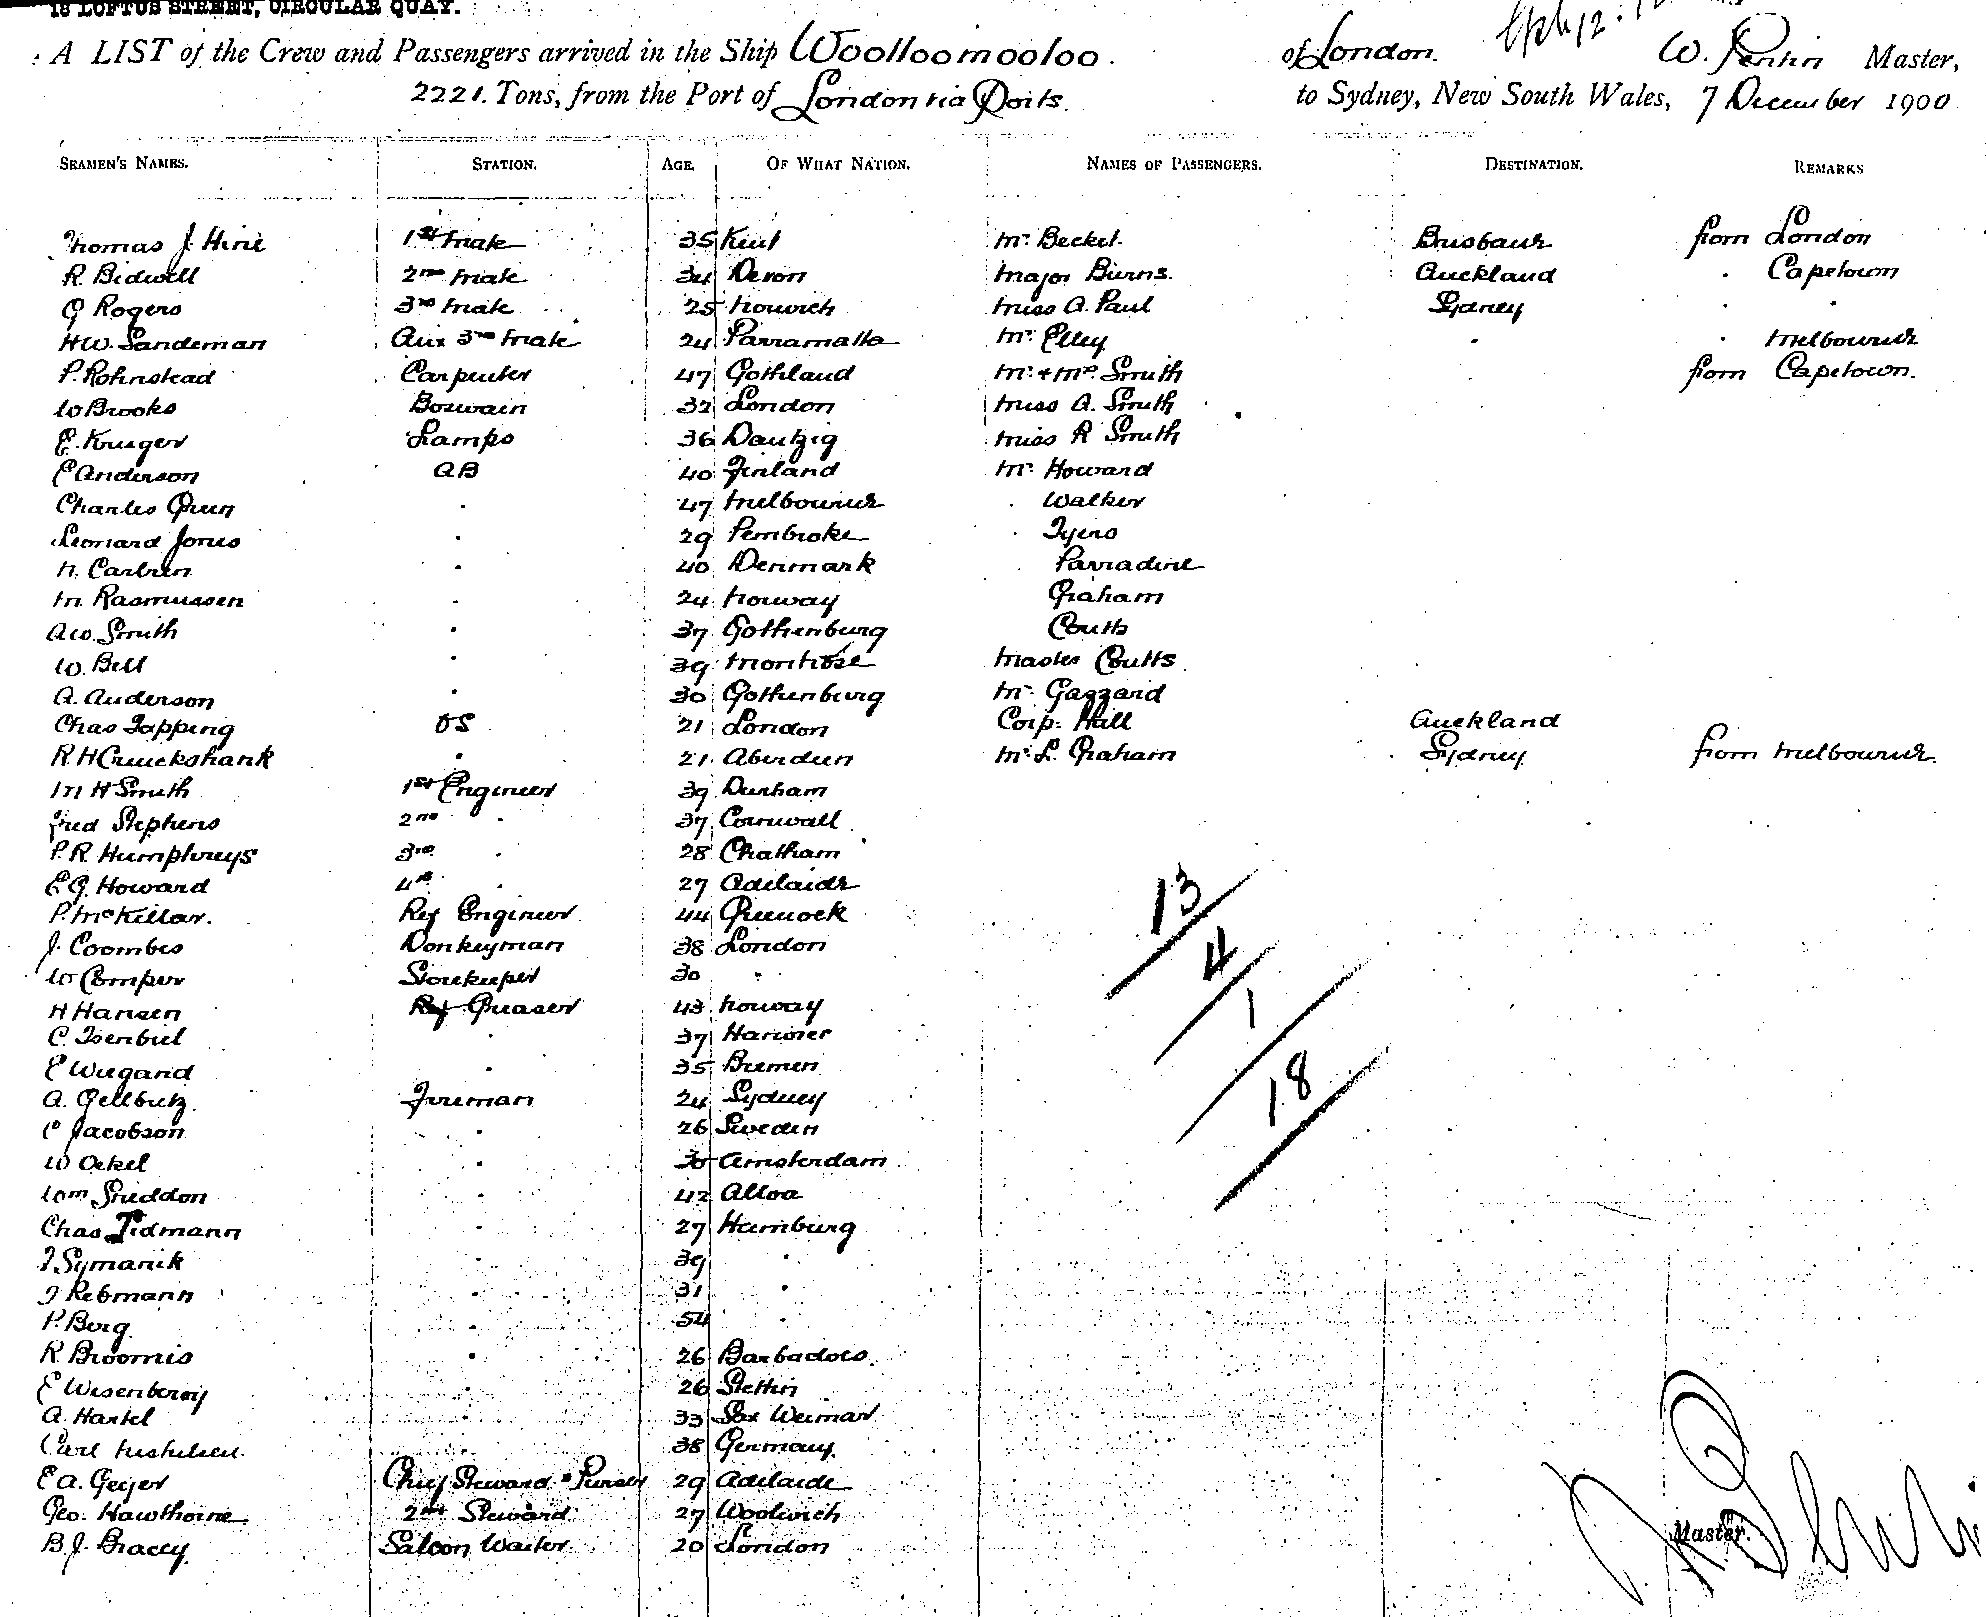 18 LOFTUS STREET, CIRCULAR QUAY.
A LIST of the Crew and Passengers arrived in the Ship Woolloomooloo. of London. W. Master,
2221. Tons, from the Port of London via Ports. to Sydney, New South Wales, 7 December 1900
SEAMEN'S NAMES. STATION. AGE. OF WHAT NATION. NAMES OF PASSENGERS. DESTINATION. REMARKS
Thomas J. Hine 1st Mate 35 Kent Mr. Becket. Brisbane from London
R. Bidwell 2nd Mate 34 Devon Major Burns. Auckland . Capetown
G Rogers 3rd Mate 25 Norwich Miss A. Paul Sydney . .
HW. Sandeman Aux 3rd Mate 24 Parramatta Mr. Elley . . Melbourne
P. Rohnstead Carpenter 47 Gothland Mr. + Mrs. Smith from Capetown.
W Brooks Boswain 32 London Miss A. Smith
E. Kruger Lamps 36 Dantzig Miss R Smith
E Anderson AB 40 Finland Mr. Howard
Charles Green . 47 Melbourne . Walker
Leonard Jones . 29 Pembroke . Tyers
N. Carlsen . 40 Denmark . Parradine
M. Rasmussen . 24 Norway Graham
A.W. Smith . 37 Gothenburg Coutts
W. Bell . 39 Montrose Master Coutts
A. Anderson . 30 Gothenburg Mr. Gazzard
Chas Tapping OS 21 London Corp. Hall Auckland
R H Cruickshank . 21 Aberdeen Mr. L. Graham Sydney from Melbourne.
M H Smith 1st Engineer 39 Durham
Fred Stephens 2nd . 37 Cornwall
P. R. Humphreys 3rd . 28 Chatham
E G. Howard 4th . 27 Adelaide
P. McKillar. Ref Engineer 44 Greenock
J. Coombes Donkeyman 38 London
W Comper Storekeeper 30 "
H Hansen Greaser 43 Norway
C. Isenbiel . 37 Hanover
E Wiegand . 35 Bremen
A. Gellbutz. Fireman 24 Sydney
C Jacobson . 26 Sweden
W Ockel . 30 Amsterdam
Wm Sneddon . 42 Alloa
Chas Tidmann . 27 Hamburg
J Symanik . 39 .
J Rebmann . 31 .
P. Berg . 54 .
R. Broomes . 26 Barbadoes.
E Wesenberg 26 Stettin
A. Hartel 33 Sax Weimar
Carl 38 Germany.
E A. Geyer Chief Steward & Purser 29 Adelaide
Geo. Hawthorne 2nd Steward 27 Woolwich
B. J. Bracey. Saloon Waiter 20 London
13
4
1
18
Master.